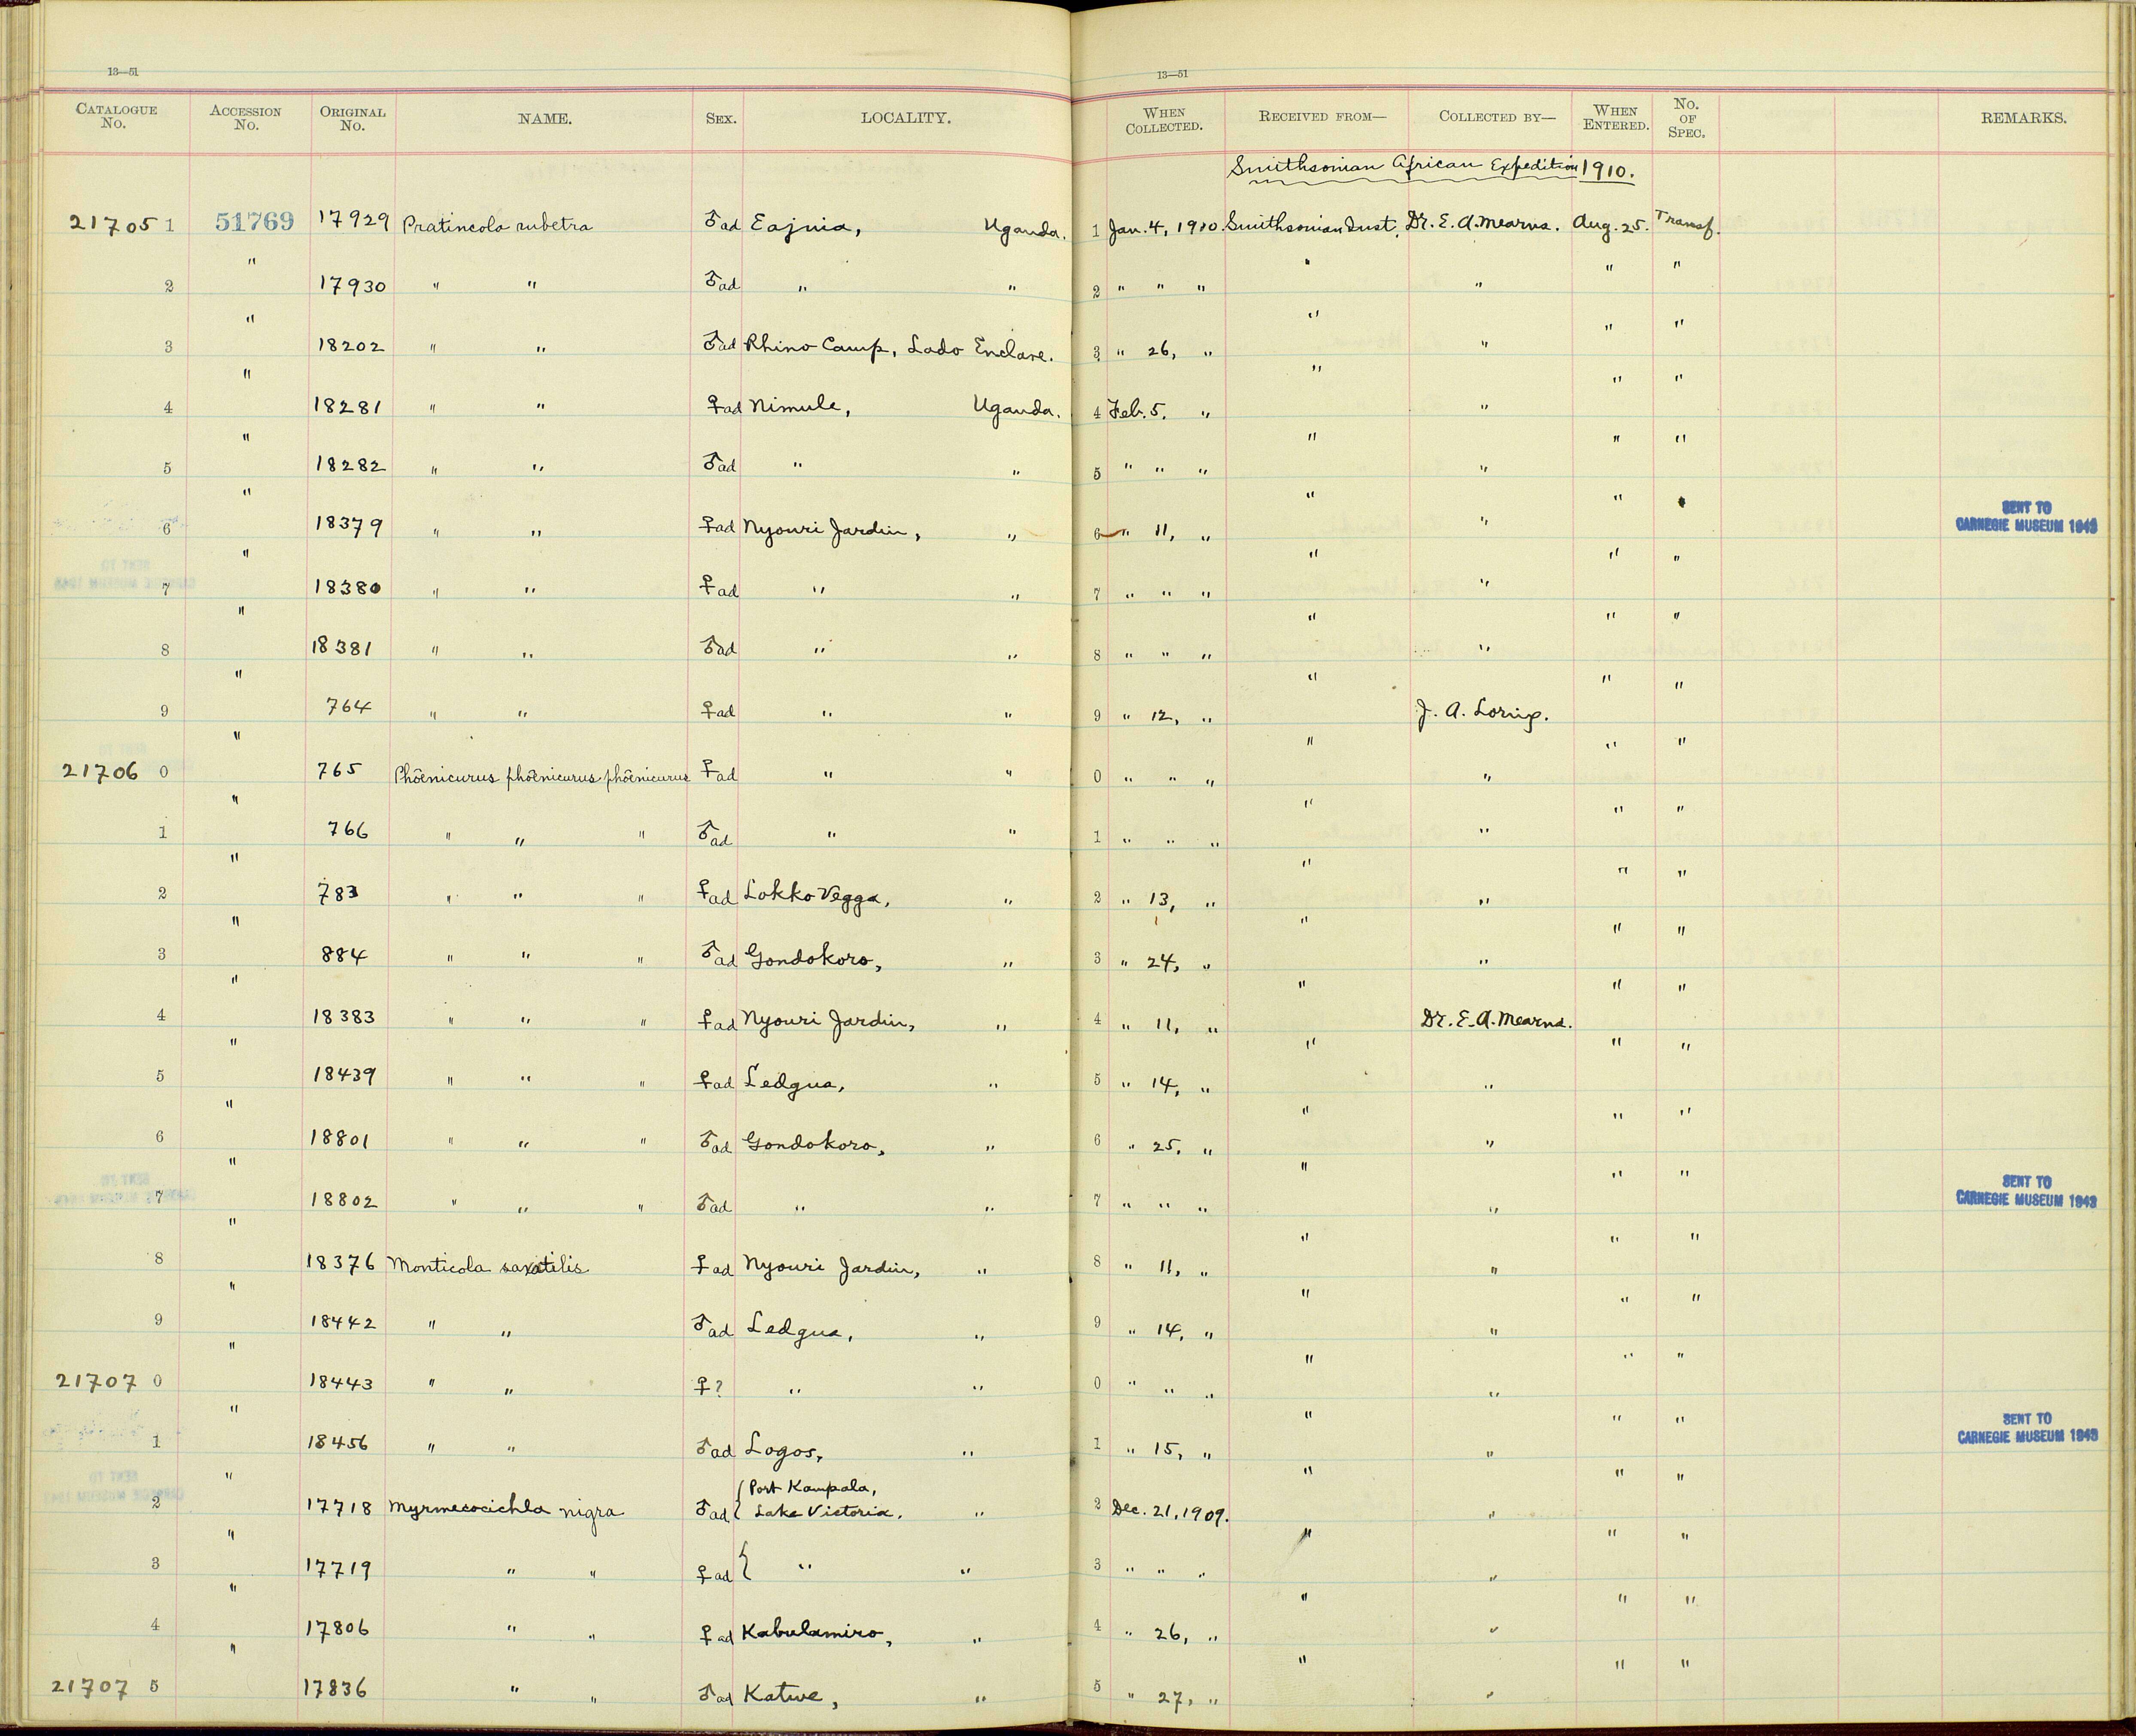 13—51
13—51
CATALOGUE No. ACCESSION No. ORIGINAL No. NAME. SEX. LOCALITY. WHEN COLLECTED. RECEIVED FROM— COLLECTED BY— WHEN ENTERED. No. OF SPEC. REMARKS.
Smithsonian African Expedition 1910.
217051 51769 17929 Pratincola rubetra ♂ad Eajuia, Uganda. 1 Jan. 4, 1910. Smithsonian Inst. Dr. E. A. Mearns. Aug. 25. Transf.
2 " 17930 " " ♂ad " " 2 " " " " " " "
3 " 18202 " " ♂ad Rhino Camp, Lado Enclave. 3 " 26, " " " " "
4 " 18281 " " ♀ad Nimule, Uganda. 4 Feb. 5. " " " " "
5 " 18282 " " ♂ad " " 5 " " " " " " "
6 " 18379 " " ♀ad Nyouri Jardin, " 6 " 11, " " " " " SENT TO CARNEGIE MUSEUM 1943
7 " 18380 " " ♀ad " " 7 " " " " " " "
8 " 18381 " " ♂ad " " 8 " " " " " " "
9 " 764 " " ♀ad " " 9 " 12, " " J. A. Loring. " "
21706 0 " 765 Phoenicurus phoenicurus phoenicurus ♀ad " " 0 " " " " " " "
1 " 766 " " " ♂ad " " 1 " " " " " " "
2 " 783 " " " ♀ad Lokko Vegga, " 2 " 13, " " " " "
3 " 884 " " " ♂ad Gondokoro, " 3 " 24, " " " " "
4 " 18383 " " " ♀ad Nyouri Jardin, " 4 " 11, " " Dr. E. A. Mearns. " "
5 " 18439 " " " ♀ad Ledgua, " 5 " 14, " " " " "
6 " 18801 " " " ♂ad Gondokoro, " 6 " 25, " " " " "
7 " 18802 " " " ♂ad " " 7 " " " " " " " SENT TO CARNEGIE MUSEUM 1943
8 " 18376 Monticola saxatilis ♀ad Nyouri Jardin, " 8 " 11, " " " " "
9 " 18442 " " ♂ad Ledgua, " 9 " 14, " " " " "
21707 0 " 18443 " " ♀? " " 0 " " " " " " "
1 " 18456 " " ♂ad Logos, " 1 " 15, " " " " " SENT TO CARNEGIE MUSEUM 1943
2 " 17718 Myrmecocichla nigra ♂ad { Port Kampala, Lake Victoria, " 2 Dec. 21, 1909. " " " "
3 " 17719 " " ♀ad { " " 3 " " " " " " "
4 " 17806 " " ♀ad Kabulamiro, " 4 " 26, " " " " "
21707 5 " 17836 " " ♂ad Katwe, " 5 " 27, " " " " "